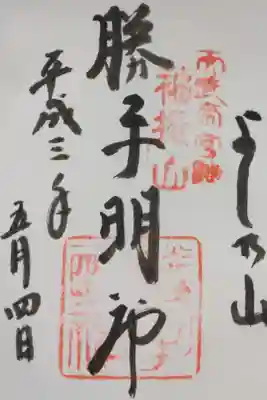 よし乃山
袖振山
勝手明神
平成三年
五月四日